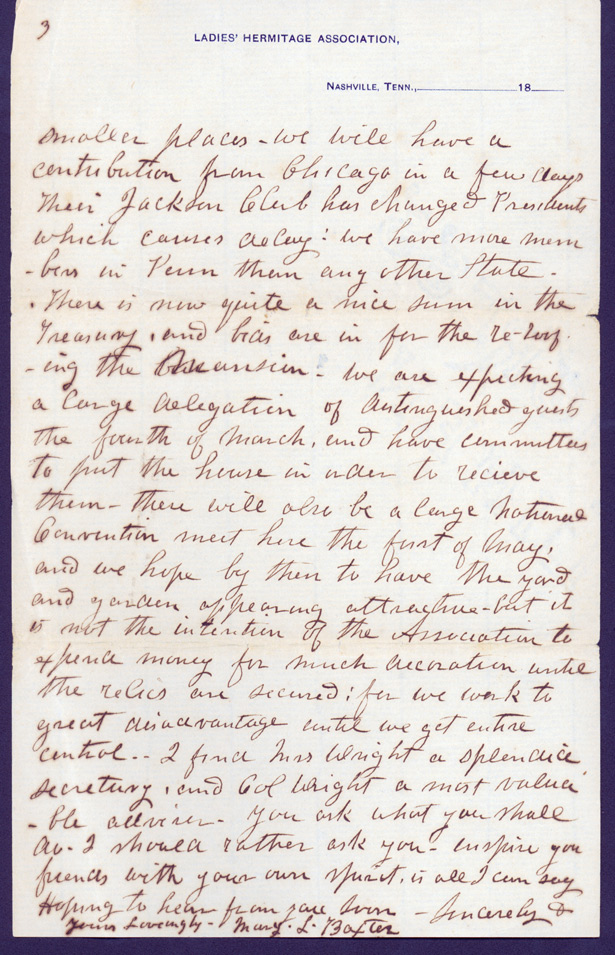 3
LADIES' HERMITAGE ASSOCIATION,
NASHVILLE, TENN., 18
smaller places - we will have a
contribution from Chicago in a few days
Their Jackson Club has changed Presidents
which causes delay: we have more mem
-bers in Tenn than any other State -
. There is now quite a nice sum in the
Treasury, and bids are in for the re-roof-
-ing the Mansion - we are expecting
a large delegation of distinguished guests
the fourth of March, and have committees
to put the house in order to recieve
them - there will also be a large National
Convention meet here the first of May,
and we hope by then to have the yard
and garden appearing attractive - but it
is not the intention of the Association to
expend money for much decoration until
the relics are secured; for we work to
great disadvantage until we get entire
control -- I find Mrs Wright a splendid
secretary, and Col Wright a most valua
-ble adviser - You ask what you shall
do - I should rather ask you - inspire your
friends with your own spirit, is all I can say
Hoping to hear from you soon - Sincerely &
yours Lovingly - Mary. L. Baxter